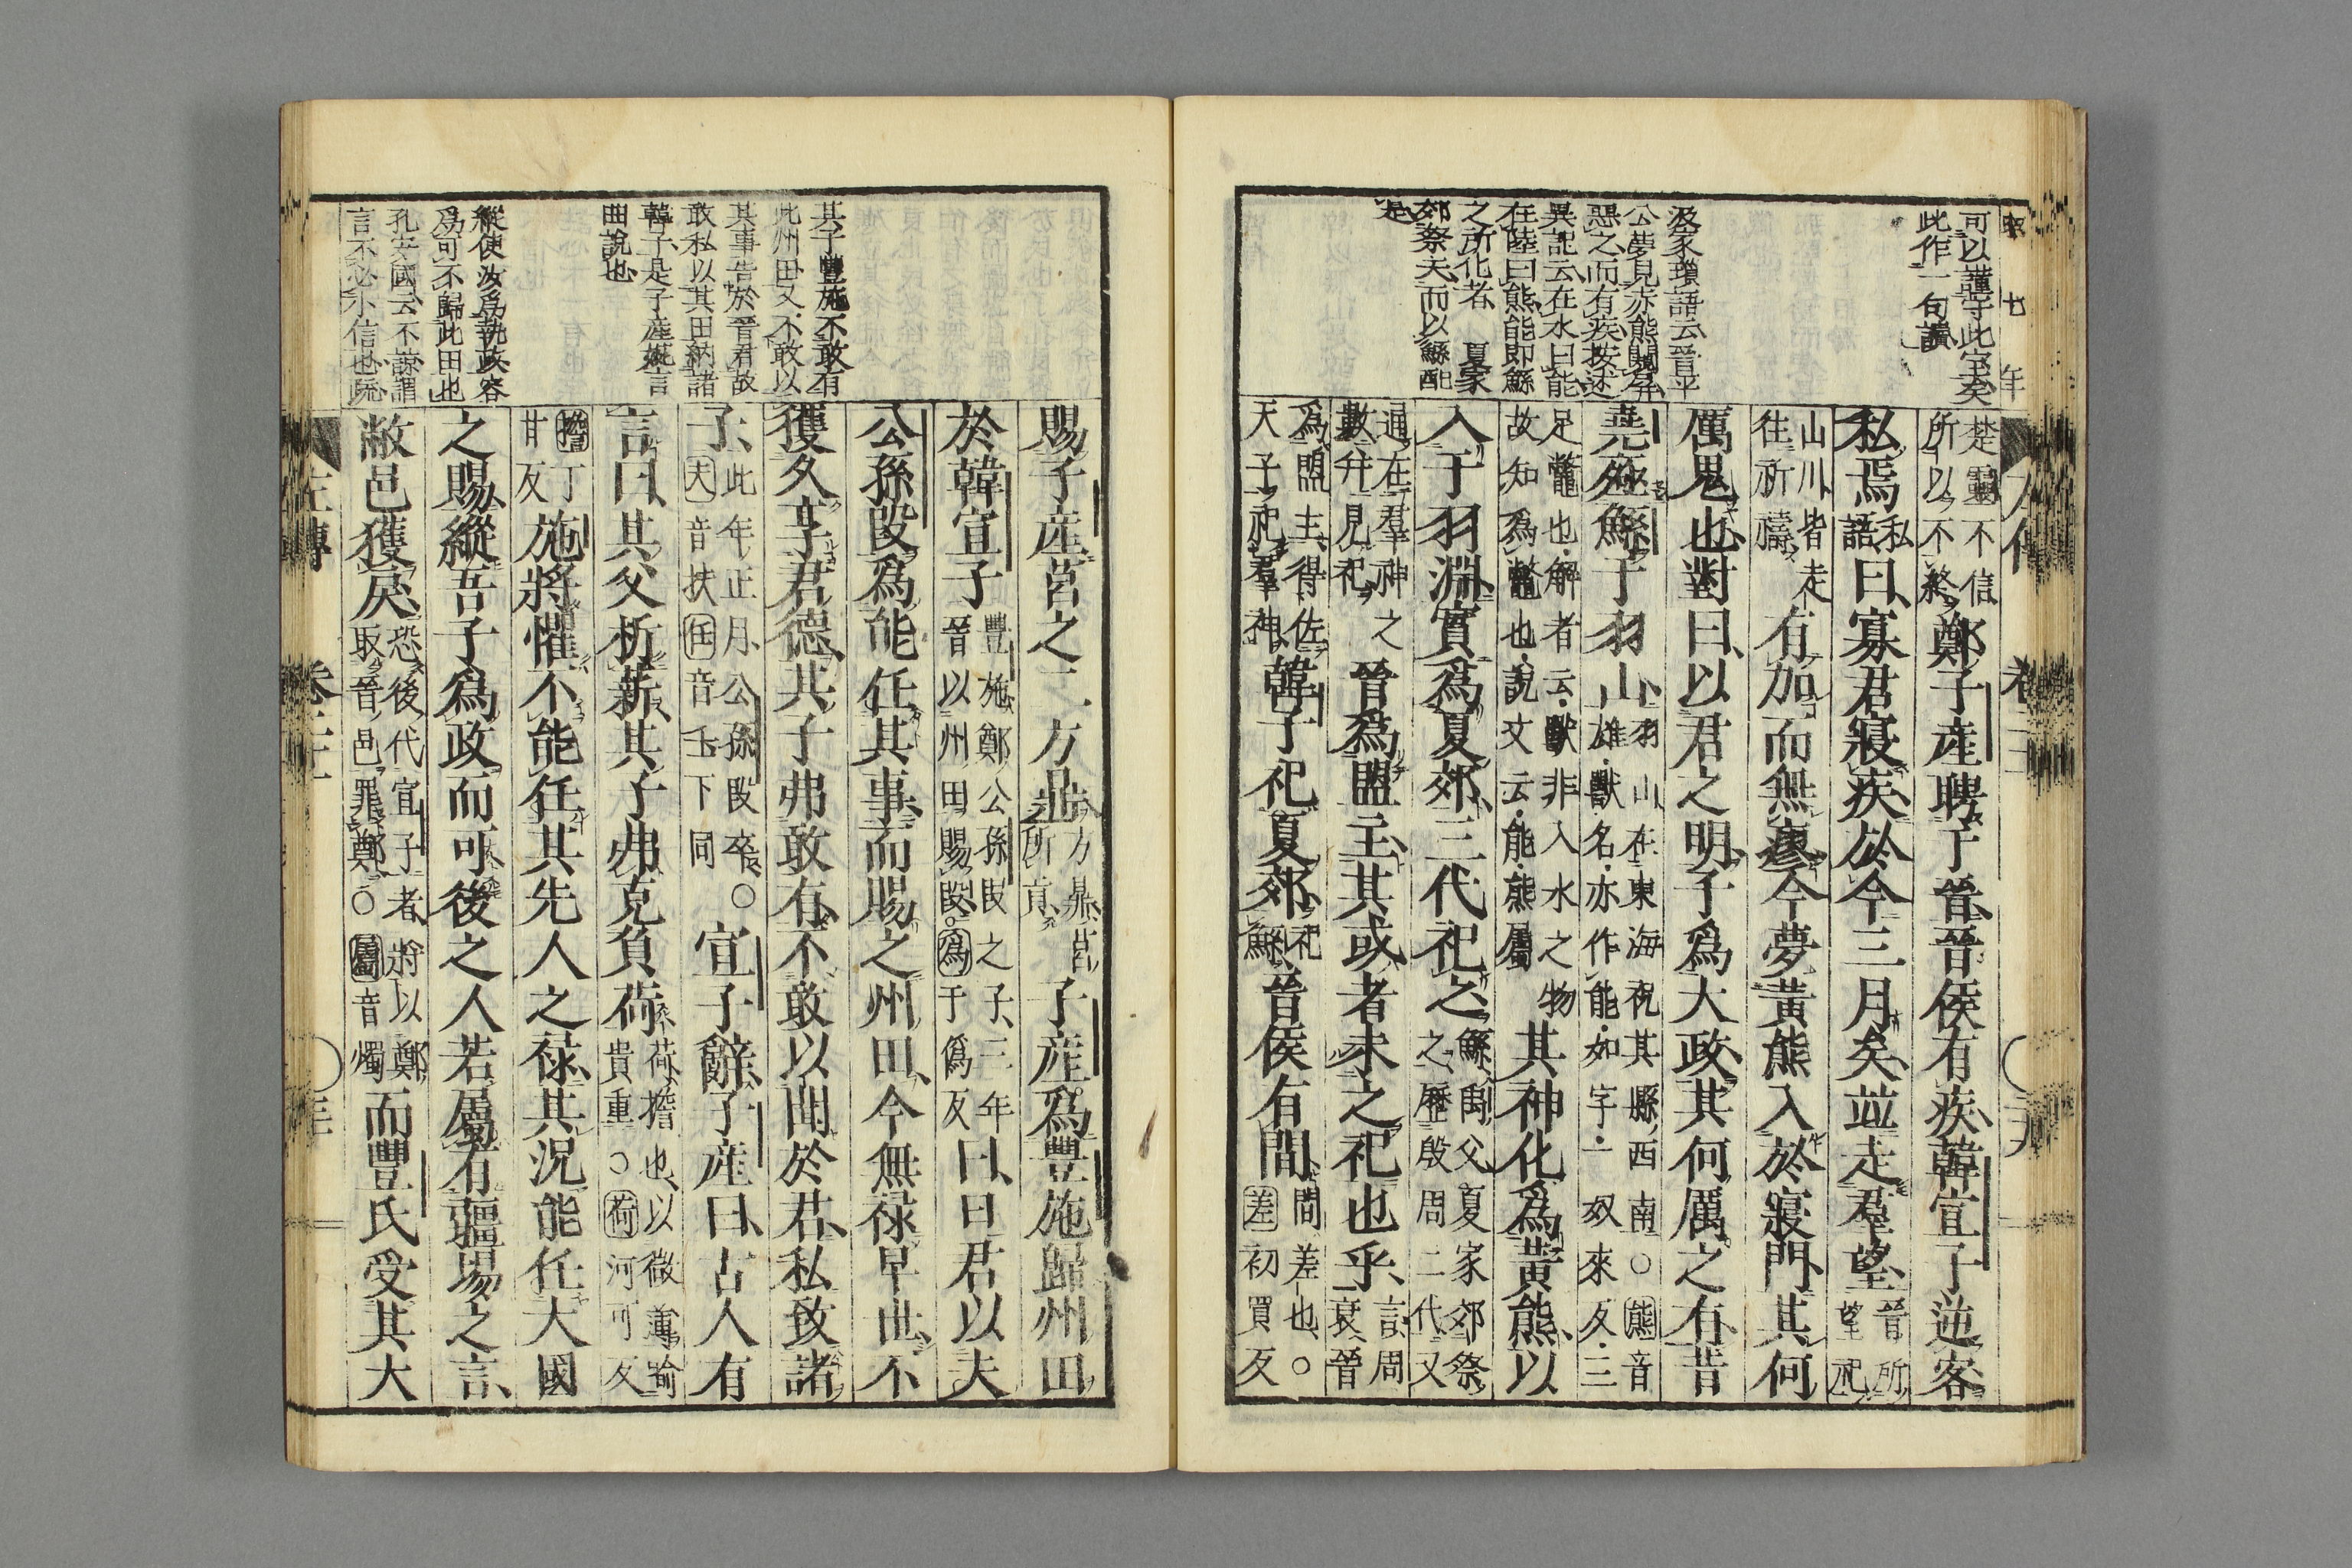 昭七年
可以謹守此宝矣
此作一句讀
汲冢瑣語云晉平
公夢見赤熊闚屏
惡之而有疾按述
異記云在水曰能
在陸曰熊能即鯀
之所化者 夏家
郊祭天而以鯀配
是
左傳 卷二十二
楚靈不信
所以不終
鄭子產聘于晉晉侯有疾韓宣子逆客
私焉
私
語
曰寡君寢疾於今三月矣並走群望
晉所
望祀
山川皆走
往祈禱
有加而無瘳今夢黃熊入於寢門其何
厲鬼也對曰以君之明子爲大政其何厲之有昔
堯殛鯀于羽山
羽山在東海祝其縣西南○熊音
雄獸名亦作能如字一奴來反三
足鼈也解者云獸非入水之物
故知爲鼈也說文云能熊屬
其神化爲黃熊以
入于羽淵實爲夏郊三代祀之
鯀禹父夏家郊祭
之歷殷周二代又
通在羣神之
數幷見祀
晉爲盟主其或者未之祀也乎
言周
衰晉
爲盟主得佐
天子祀羣神
韓子祀夏郊
祀
鯀
晉侯有間
間差也○
差初買反
賜子產莒之二方鼎
方鼎莒
所貢
子產爲豐施歸州田
於韓宣子
豐施鄭公孫段之子三年
晉以州田賜段○爲于僞反
曰日君以夫
公孫段爲能任其事而賜之州田今無祿早世不
獲久享君德其子弗敢有不敢以聞於君私致諸
子
此年正月公孫段卒○
夫音扶任音壬下同
宣子辭子產曰古人有
言曰其父析薪其子弗克負荷
荷擔也以微薄喻
貴重○荷河可反
擔丁
甘反
施將懼不能任其先人之祿其況能任大國
之賜縱吾子爲政而可後之人若屬有疆場之言
敝邑獲戾
恐後代宣子者將以鄭
取晉邑罪鄭○屬音燭
而豐氏受其大
其子豐施不敢有
此州田又不敢以
其事告於晉君故
敢私以其田納諸
韓子是子產婉言
曲說也
縱使汝爲執政容
爲可不歸此田也
孔安國云不諒謂
言不必小信也疏
左傳 卷二十二